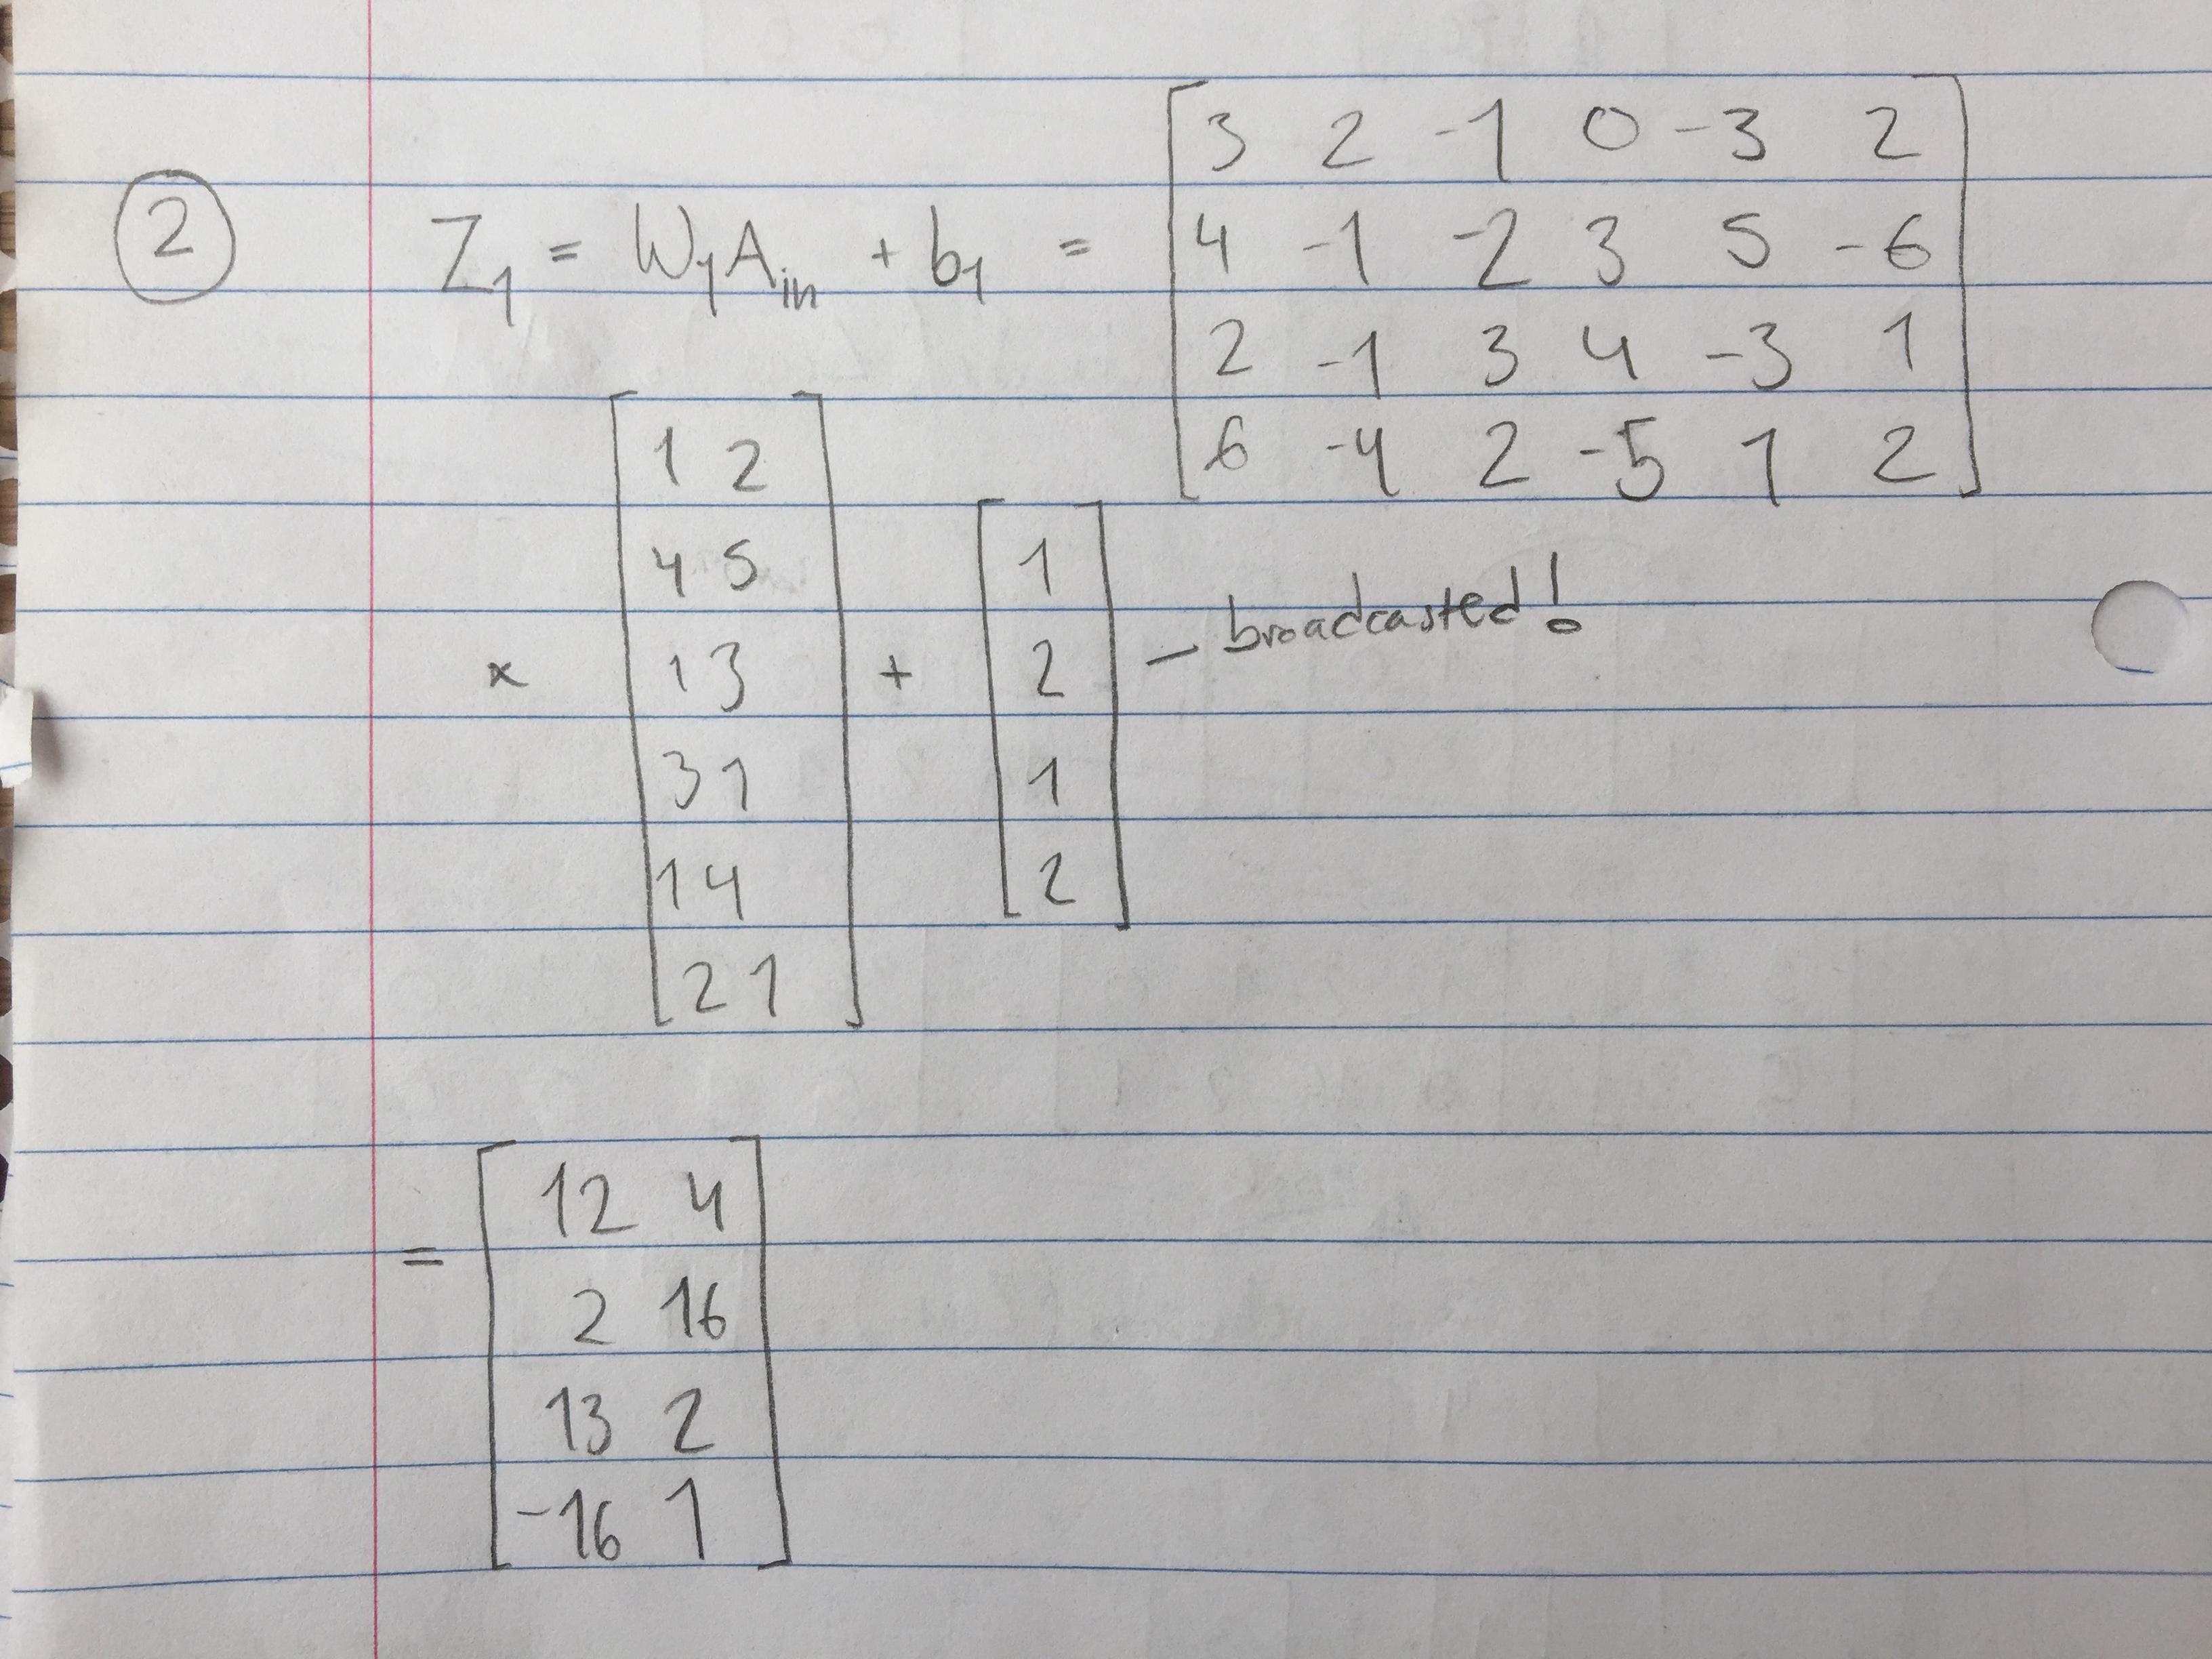 2
Z1 = W1Ain + b1 =
3 2 -1 0 -3 2
4 -1 -2 3 5 -6
2 -1 3 4 -3 1
6 -4 2 -5 1 2
×
1 2
4 5
1 3
3 1
1 4
2 1
+
1
2
1
2
- broadcasted!
=
12 4
2 16
13 2
-16 1